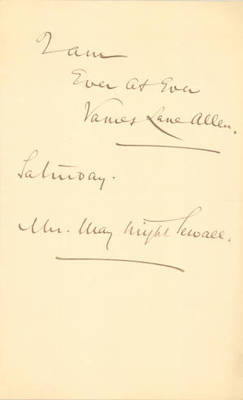 I am
Ever as Ever
James Lane Allen.
Saturday.
Mrs. May Wright Sewall.